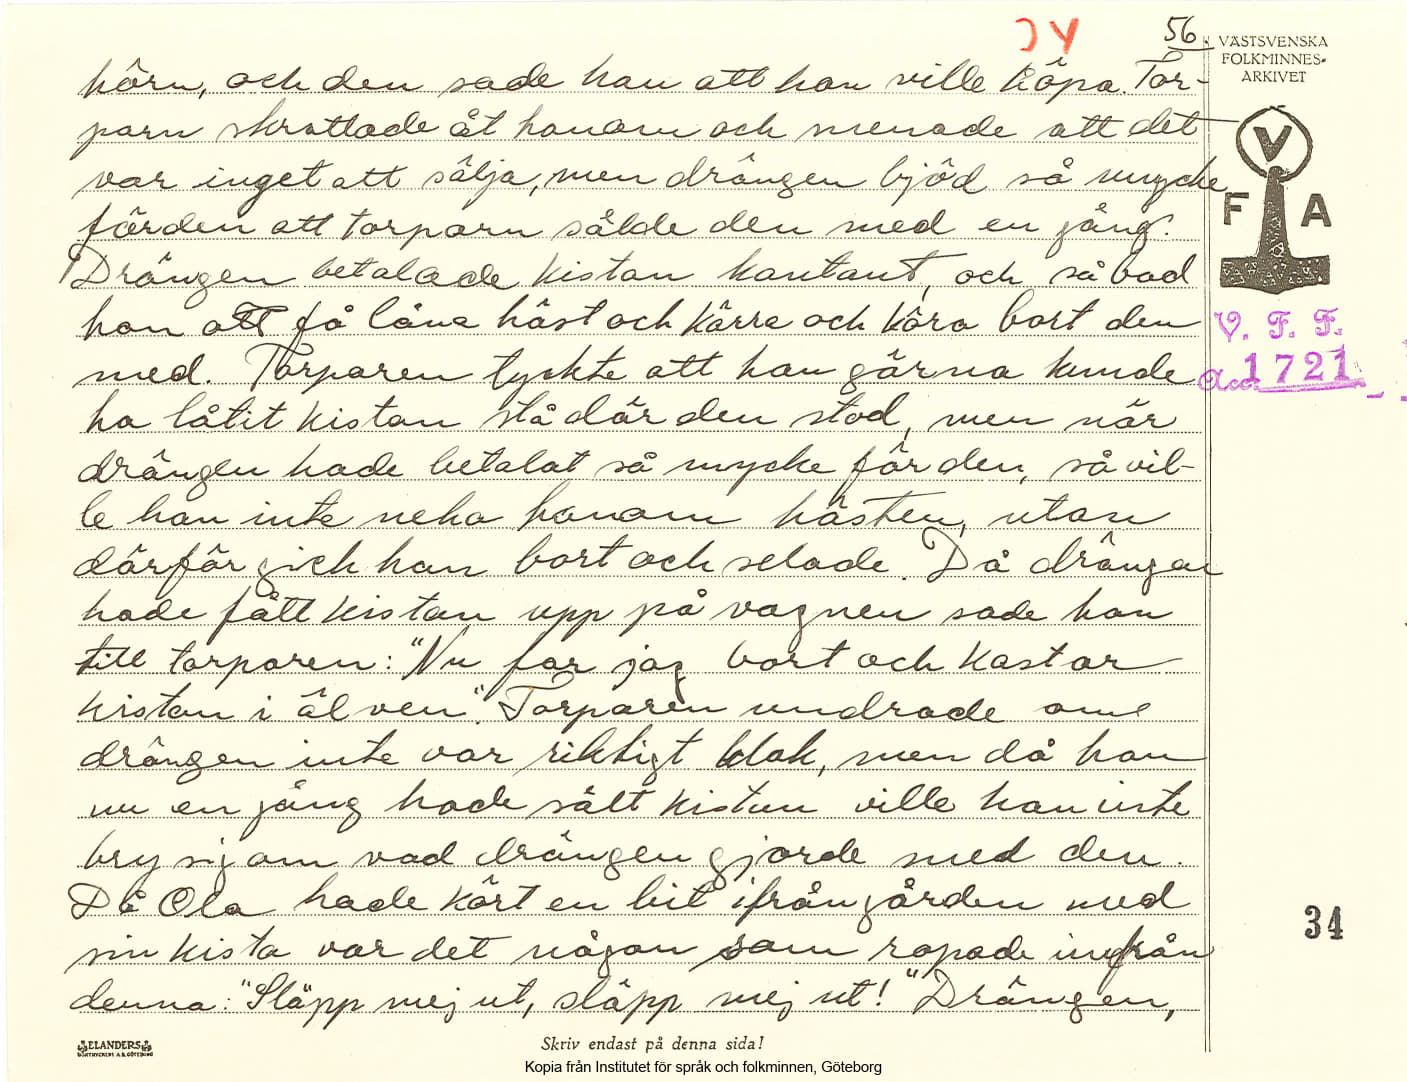 56
VÄSTSVENSKA
FOLKMINNES-
ARKIVET
hörn, och den sade han att han ville köpa. Tor-
parn skrattade åt honom och menade att det
var inget att sälja, men drängen bjöd så mycke
för den att torparn sålde den med en gång.
Drängen betalade kistan kontant, och så bad
han att få låna häst och kärra och köra bort den
med. Torparen tyckte att han gärna kunde
ha låtit kistan stå där den stod, men när
drängen hade betalat så mycke för den, så vil-
le han inte neka honom hästen, utan
därför gick han bort och selade. Då drängen
hade fått kistan upp på vagnen sade han
till torparen: "Nu far jag bort och kastar
kistan i älven". Torparen undrade om
drängen inte var riktigt klok, men då han
nu en gång hade sålt kistan ville han inte
bry sig om vad drängen gjorde med den.
Då Ola hade kört en bit ifrån gården med
sin kista var det någon som ropade inifrån
denna: "Släpp mej ut, släpp mej ut!" Drängen,
V
F A
V. F. F.
Acc. 1721
34
ELANDERS
BOKTRYCKERI A.B. GÖTEBORG
Skriv endast på denna sida!
Kopia från Institutet för språk och folkminnen, Göteborg